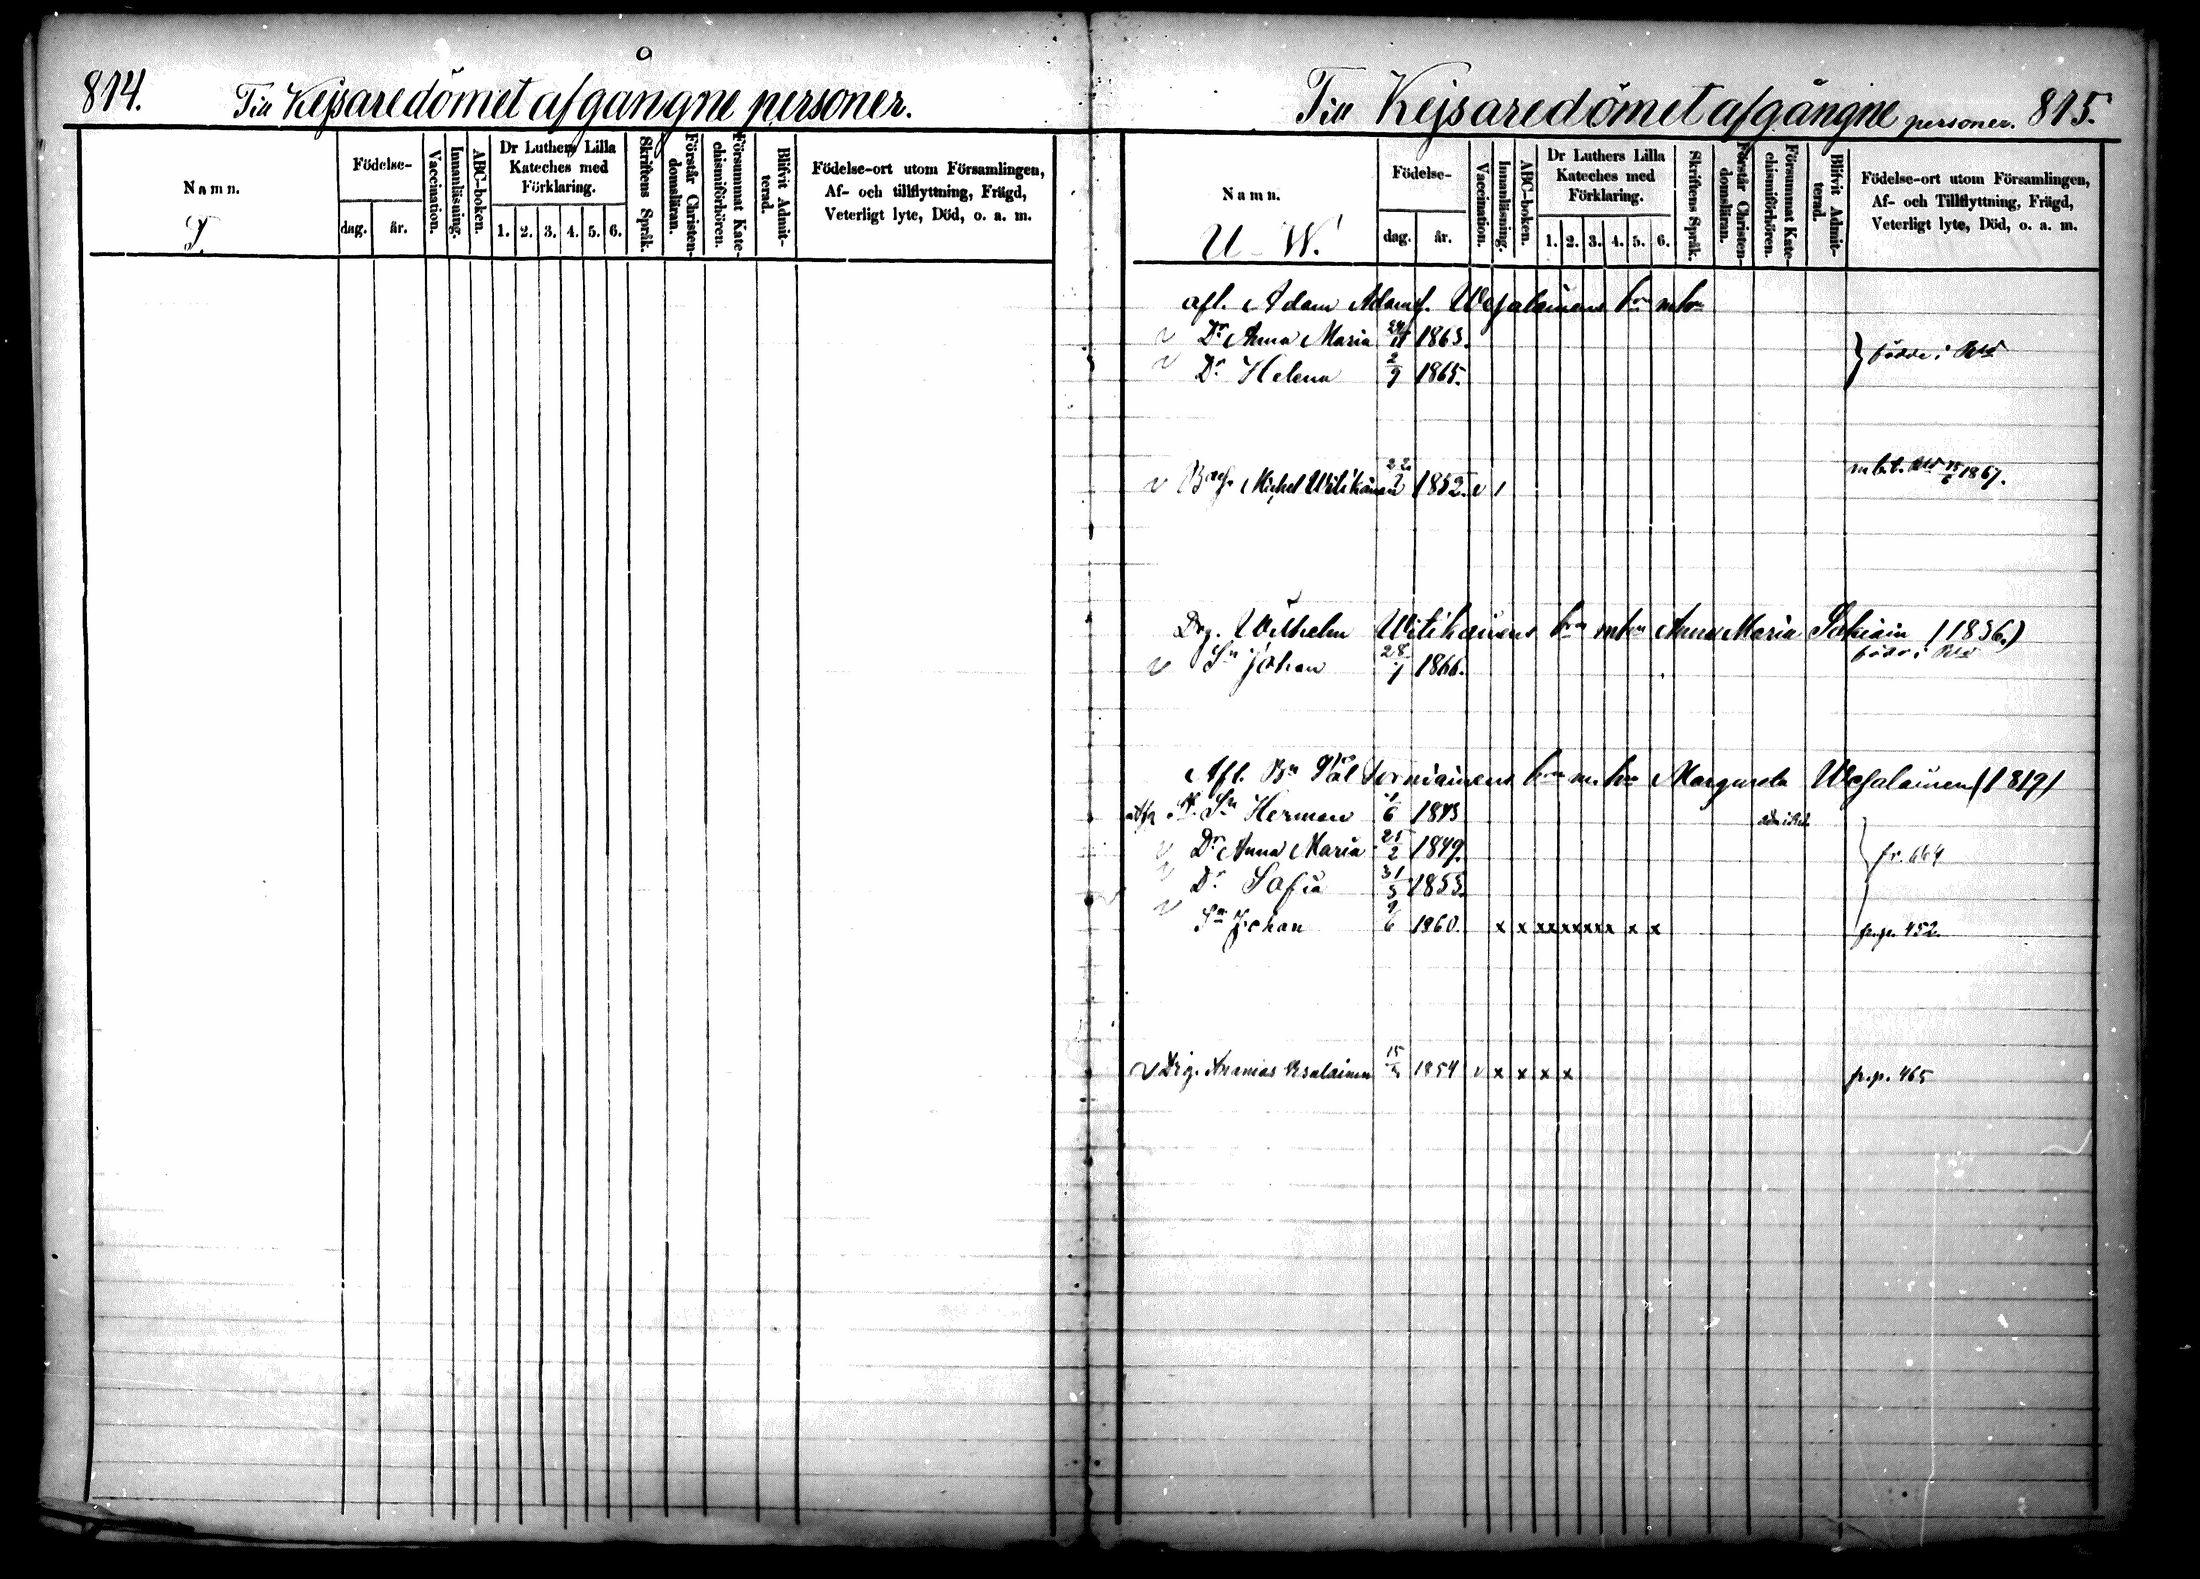 814.
Till Kejsaredömet afgångne personer.
Namn.
Födelse-
dag. år.
Vaccination.
Innanläsning.
ABC-boken.
Dr Luthers Lilla Kateches med Förklaring.
1. 2. 3. 4. 5. 6.
Skriftens Språk.
Förstår Christendomsläran.
Försummat Katechismiförhören.
Blifvit Admitterad.
Födelse-ort utom Församlingen,
Af- och tillflyttning, Frägd,
Veterligt lyte, Död, o. a. m.
Till Kejsaredömet afgångne personer. 815.
Namn.
U-W.
Födelse-
dag. år.
Vaccination.
Innanläsning.
ABC-boken.
Dr Luthers Lilla Kateches med Förklaring.
1. 2. 3. 4. 5. 6.
Skriftens Språk.
Förstår Christendomsläran.
Försummat Katechismiförhören.
Blifvit Admitterad.
Födelse-ort utom Församlingen,
Af- och Tillflyttning, Frägd,
Veterligt lyte, Död, o. a. m.
afl. Adam Adamsf. Wesalainens
v Dr Anna Maria 1863. födde i
v Dr Helena 2/9 1865.
v Michel Witikainen 1852. v 1867.
Drg. Wilhelm Witikainens Anna Maria (1836.)
v Sn Johan 28/1 1866. född i
Afl. Bn Pål Torniainens Margareta Wesalainen (1819)
Sn Herman 1843
v Dr Anna Maria 21/2 1849. fr. 664
v Dr Sofia 31/5 1853.
v Sn Johan 9/6 1860. x x x x x x x x x x x fr. p. 452.
v Drg. Ananias Wesalainen 1854 v x x x x fr. p. 465